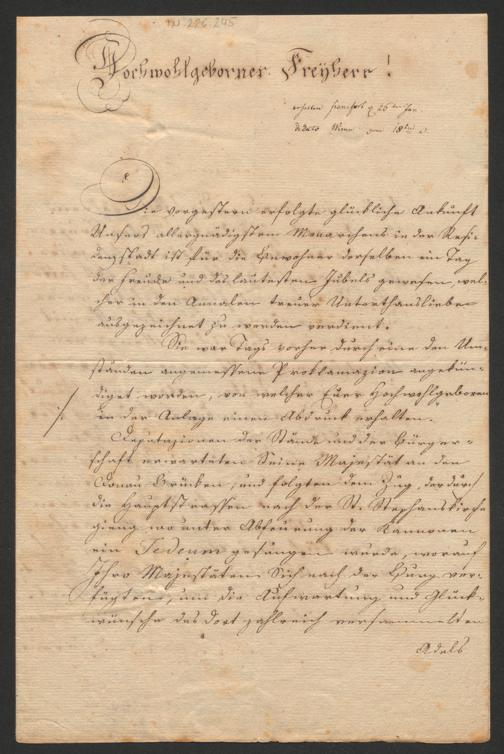 IN 286.245
Hochwohlgeborner Freyherr!
erhalten
de dato Wien vom 18ten d.
Die vorgestern erfolgte glückliche Ankunft
Unsers allergnädigsten Monarchens in der Resi-
denzstadt ist für die Einwohner derselben ein Tag
der Freude und des lautesten Jubels gewesen, wel-
cher in den Annalen treuer Unterthansliebe
ausgezeichnet zu werden verdient.
Sie war Tags vorher durch eine den Um-
ständen angemessene Proklamazion angekün-
diget worden, von welcher Euer Hochwohlgeboren
in der Anlage einen Abdruck erhalten.
Deputazionen der Stände und der Bürger-
schaft erwarteten Seine Majestät an den
Donau Brücken, und folgten dem Zug, der durch
die Hauptstrassen nach der St. Stephanskirche
gieng, wo unter Abfeurung der Kannonen
ein Tedeum gesungen wurde, worauf
Ihro Majestäten Sich nach der Burg ver-
fügten, um die Aufwartung und Glück-
wünsche des dort zahlreich versammelten
Adels